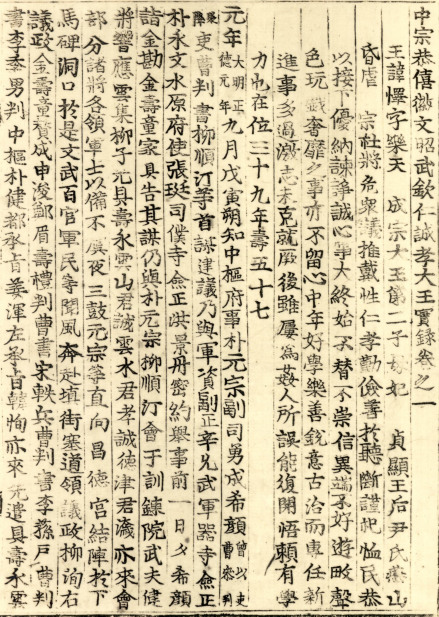 中宗恭僖徽文昭武欽仁誠孝大王實錄卷之一
王諱懌字樂天 成宗大王第二子母妃 貞顯王后尹氏燕山
昏虐 宗社將危衆議推戴性仁孝勤儉善於聽斷謹祀恤民恭
以接下優納諫諍誠心事大終始不替不崇信異端不好遊畋聲
色玩戲奢靡之事亦不留心中年好學樂善銳意古治而專任新
進事多過激志未克就厥後雖屢爲姦人所誤能復開悟賴有學
力也在位三十九年壽五十七
元年 大明正德元年 九月戊寅朔知中樞府事朴元宗副司勇成希顔 曾以吏曹參判
吏曹判書柳順汀等首謀建議乃與軍資副正辛允武軍器寺僉正
朴永文水原府使張珽司僕寺僉正洪景舟密約舉事前一日夕希顔
詣金勘金壽童家具告其謀仍與朴元宗柳順汀會于訓鍊院武夫健
將響應雲集柳子光具壽永雲山君誡雲水君孝誠德津君濊亦來會
部分諸將各領軍士以備不虞夜三鼓元宗等直向昌德宮結陣於下
馬碑洞口於是文武百官軍民等聞風奔赴塡街塞道領議政柳洵右
議政金壽童贊成申浚鄭眉壽禮判曹書宋軼兵曹判書李蓀戶曹判
書李季男判中樞朴健都承旨姜渾左承旨韓恂亦來 先遣具壽永雲